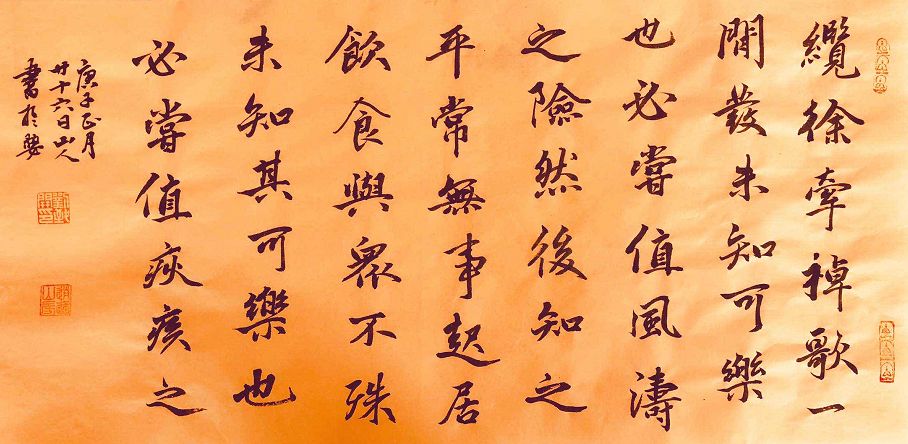 纜徐牽棹歌一
閒發未知可樂
也必嘗值風濤
之險然後知之
平常無事起居
飲食與衆不殊
未知其可樂也
必嘗值疾疢之
庚子正月
廿十六日山人
書於